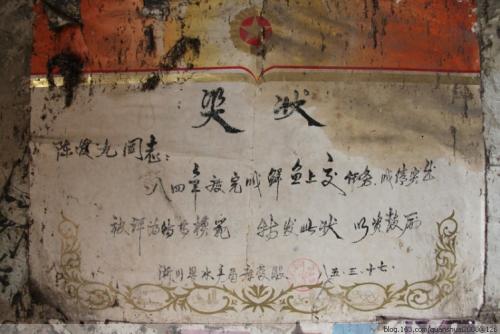 奖状
陈俊九同志：
八四年度完成鲜鱼上交任务，成绩突出
被评为劳动模范 特发此状 以资鼓励
淅川县水产局
八五.三.十七.
blog.163.com/quanshuwu10008126